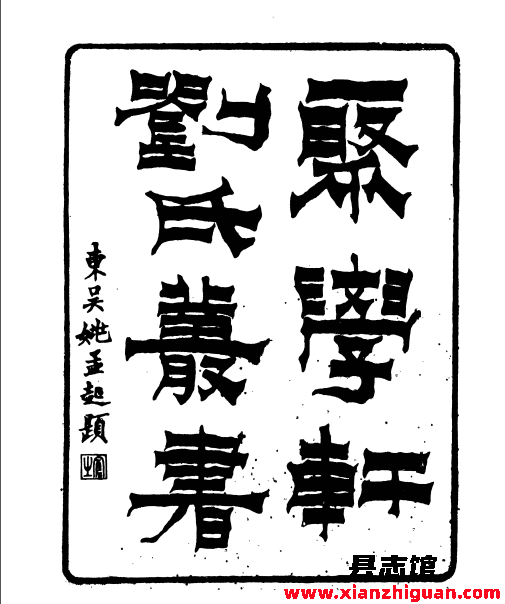 聚學軒
劉氏叢書
東吳姚孟起題
县志馆
www.xianzhiguan.com